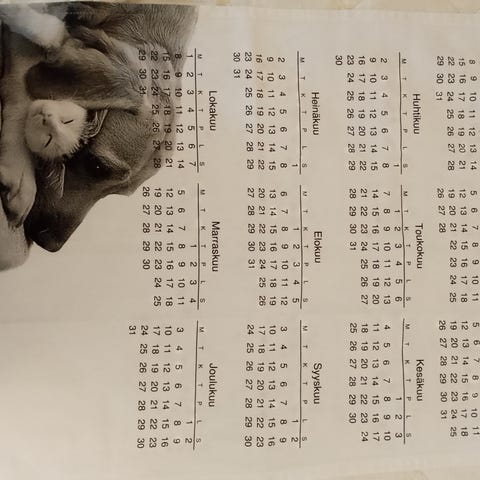 8 9 10 11 12 13 14
15 16 17 18 19 20 21
22 23 24 25 26 27 28
29 30 31
5 6 7 8 9 10 11
12 13 14 15 16 17 18
19 20 21 22 23 24 25
26 27 28
5 6 7 8 9 10 11
12 13 14 15 16 17 18
19 20 21 22 23 24 25
26 27 28 29 30 31
Huhtikuu
M T K T P L S
1
2 3 4 5 6 7 8
9 10 11 12 13 14 15
16 17 18 19 20 21 22
23 24 25 26 27 28 29
30
Toukokuu
M T K T P L S
1 2 3 4 5 6
7 8 9 10 11 12 13
14 15 16 17 18 19 20
21 22 23 24 25 26 27
28 29 30 31
Kesäkuu
M T K T P L S
1 2 3
4 5 6 7 8 9 10
11 12 13 14 15 16 17
18 19 20 21 22 23 24
25 26 27 28 29 30
Heinäkuu
M T K T P L S
1
2 3 4 5 6 7 8
9 10 11 12 13 14 15
16 17 18 19 20 21 22
23 24 25 26 27 28 29
30 31
Elokuu
M T K T P L S
1 2 3 4 5
6 7 8 9 10 11 12
13 14 15 16 17 18 19
20 21 22 23 24 25 26
27 28 29 30 31
Syyskuu
M T K T P L S
1 2
3 4 5 6 7 8 9
10 11 12 13 14 15 16
17 18 19 20 21 22 23
24 25 26 27 28 29 30
Lokakuu
M T K T P L S
1 2 3 4 5 6 7
8 9 10 11 12 13 14
15 16 17 18 19 20 21
22 23 24 25 26 27 28
29 30 31
Marraskuu
M T K T P L S
1 2 3 4
5 6 7 8 9 10 11
12 13 14 15 16 17 18
19 20 21 22 23 24 25
26 27 28 29 30
Joulukuu
M T K T P L S
1 2
3 4 5 6 7 8 9
10 11 12 13 14 15 16
17 18 19 20 21 22 23
24 25 26 27 28 29 30
31